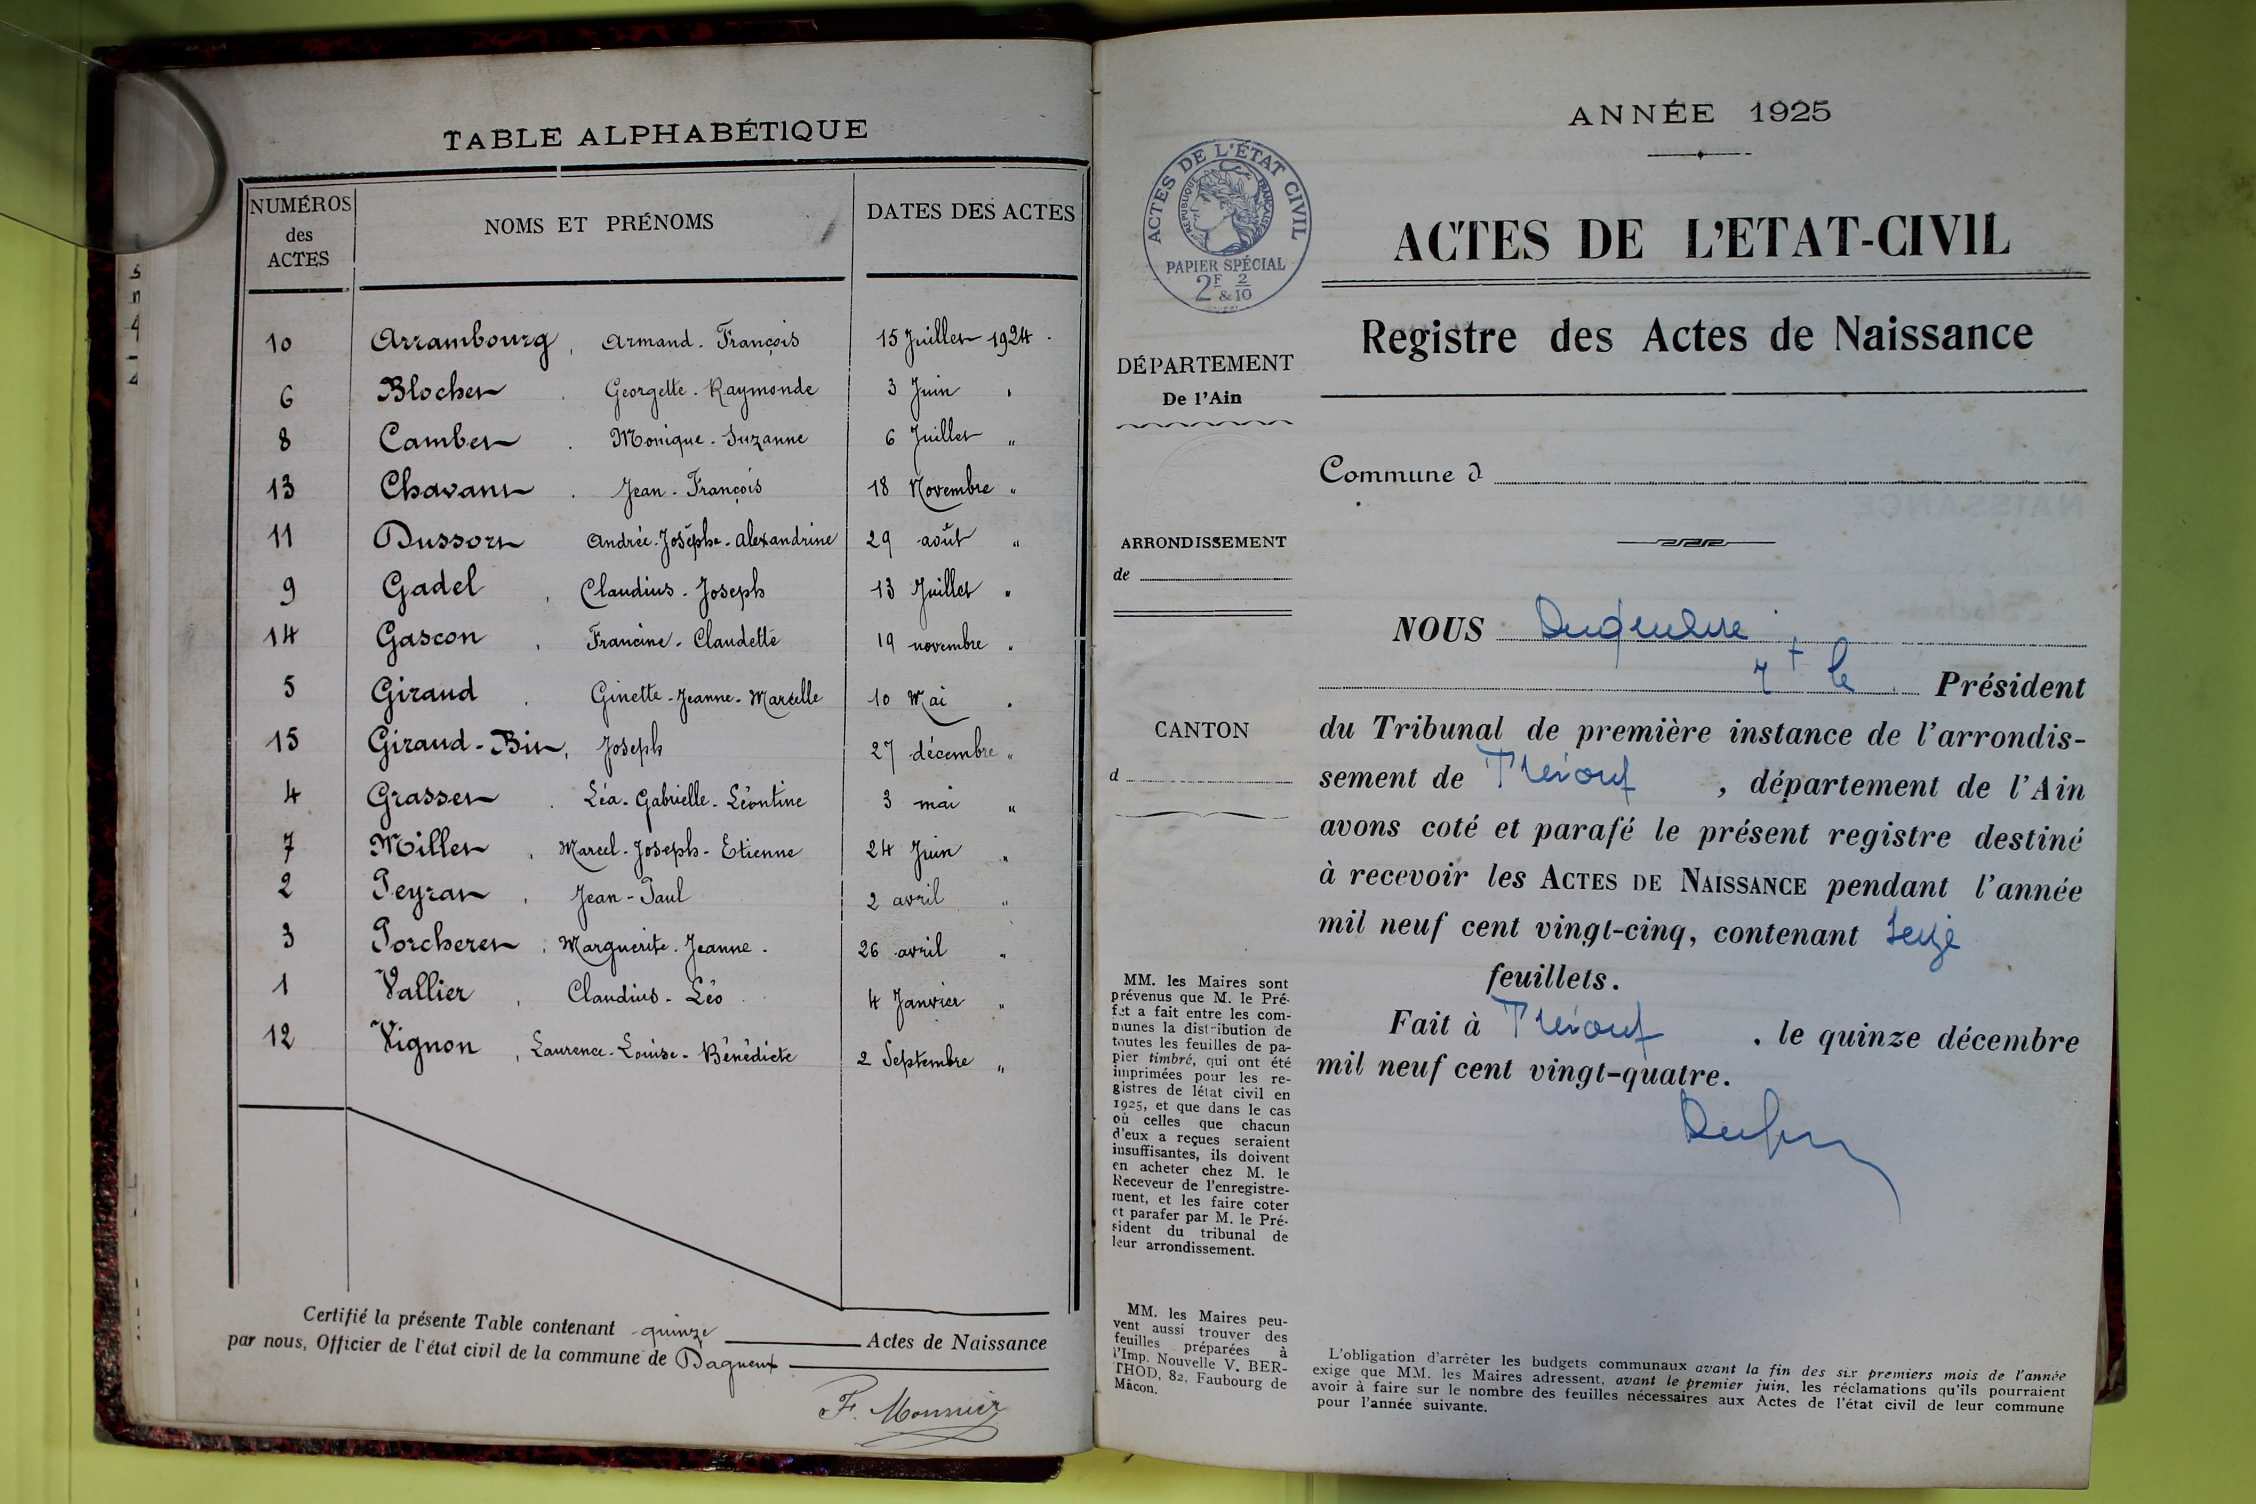 TABLE ALPHABÉTIQUE
NUMÉROS des ACTES NOMS ET PRÉNOMS DATES DES ACTES
10 Arrambourg, Armand-François 15 Juillet 1924.
6 Blochet . Georgette-Raymonde 3 Juin "
8 Cambet . Monique-Suzanne 6 Juillet "
13 Chavant . Jean-François 18 Novembre "
11 Dussort Andrée-Josèphe-Alexandrine 29 août "
9 Gadel , Claudius-Joseph 13 Juillet "
14 Gascon , Francine-Claudette 19 novembre "
5 Giraud . Ginette-Jeanne-Marcelle 10 Mai "
15 Giraud-Bit, Joseph 27 décembre "
4 Grasset . Léa-Gabrielle-Léontine 3 mai "
7 Millet , Marcel-Joseph-Etienne 24 Juin "
2 Peyrat , Jean-Paul 2 avril "
3 Porcheret , Marguerite-Jeanne. 26 avril "
1 Vallier , Claudius-Léo 4 Janvier "
12 Vignon , Laurence-Louise-Bénédicte 2 Septembre "
Certifié la présente Table contenant quinze Actes de Naissance
par nous, Officier de l'état civil de la commune de Dagneux
F. Monnier
ANNÉE 1925
ACTES DE L'ÉTAT CIVIL
RÉPUBLIQUE FRANÇAISE
PAPIER SPÉCIAL
2F & 2/10
ACTES DE L'ETAT-CIVIL
Registre des Actes de Naissance
DÉPARTEMENT
De l'Ain
Commune d
ARRONDISSEMENT
de
CANTON
d
NOUS
le Président
du Tribunal de première instance de l'arrondis-
sement de Trévoux , département de l'Ain
avons coté et parafé le présent registre destiné
à recevoir les ACTES DE NAISSANCE pendant l'année
mil neuf cent vingt-cinq, contenant seize
feuillets.
Fait à Trévoux , le quinze décembre
mil neuf cent vingt-quatre.
MM. les Maires sont
prévenus que M. le Pré-
fet a fait entre les com-
munes la distribution de
toutes les feuilles de pa-
pier timbré, qui ont été
imprimées pour les re-
gistres de létat civil en
1925, et que dans le cas
où celles que chacun
d'eux a reçues seraient
insuffisantes, ils doivent
en acheter chez M. le
Receveur de l'enregistre-
ment, et les faire coter
et parafer par M. le Pré-
sident du tribunal de
leur arrondissement.
MM. les Maires peu-
vent aussi trouver des
feuilles préparées à
l'Imp. Nouvelle V. BER-
THOD, 82, Faubourg de
Mâcon.
L'obligation d'arrêter les budgets communaux avant la fin des six premiers mois de l'année
exige que MM. les Maires adressent, avant le premier juin, les réclamations qu'ils pourraient
avoir à faire sur le nombre des feuilles nécessaires aux Actes de l'état civil de leur commune
pour l'année suivante.